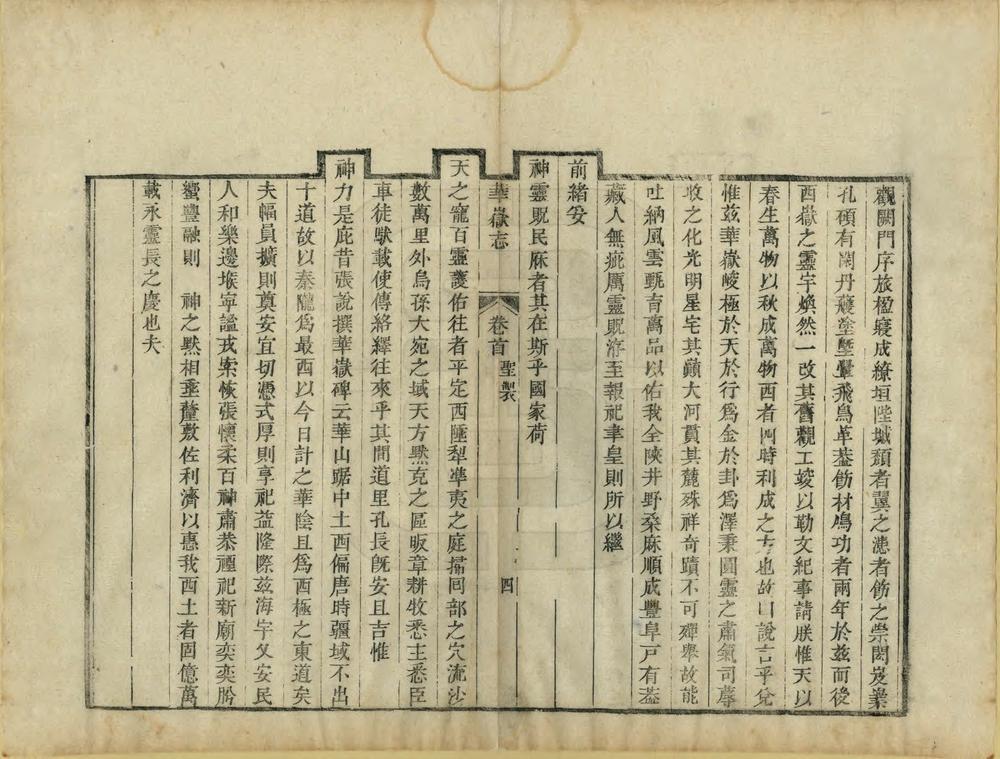 觀闕門序旅楹寢成繚垣陛城頹者翼之漶者飭之崇閎岌嶪
孔碩有閑丹雘塗墍翬飛鳥革葢飭材鳩功者兩年於茲而後
西嶽之靈宇煥然一改其舊觀工竣以勒文紀事請朕惟天以
春生萬物以秋成萬物西者四時利成之方也故曰說言乎兌
惟茲華嶽崚極於天於行爲金於卦爲澤秉圓靈之肅氣司蓐
收之化光明星宅其巔大河貫其麓殊祥奇蹟不可殫舉故能
吐納風雲甄育萬品以佑我全陝井野桑麻順成豐阜戸有葢
藏人無疵厲靈貺洊至報祀聿皇則所以繼
前緒妥
神靈貺民庥者其在斯乎國家荷
華嶽志 卷首 聖製 四
天之寵百靈護佑往者平定西陲犁凖夷之庭掃囘部之穴流沙
數萬里外烏孫大宛之域天方默克之區販章耕牧悉主悉臣
車徒馱載使傳絡繹往來乎其間道里孔長旣安且吉惟
神力是庇昔張說撰華嶽碑云華山踞中土西偏唐時疆域不出
十道故以秦隴爲最西以今日計之華陰且爲西極之東道矣
夫幅員擴則奠安宜切憑式厚則享祀益隆際茲海宇乂安民
人和樂邊堠寧謐戎索恢張懷柔百神肅恭禋祀新廟奕奕肸
蠁豐融則 神之黙相垂釐敷佐利濟以惠我西土者固億萬
載永靈長之慶也夫